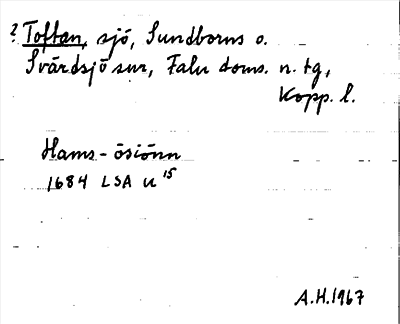 ? Toftan, sjö, Sundborns o.
Svärdsjö snr, Falu doms. n. tg,
Kopp. l.
Hams-ösiönn
1684 LSA U 15
A.H. 1967